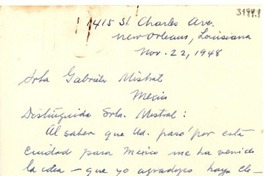 1415 St. Charles Ave.
New Orleans, Louisiana
Nov. 22, 1948
Srta Gabriela Mistral
Mexico
Distinguida Srta. Mistral:
Al saber que Ud. pasó por esta
ciudad para Mexico me ha venido
la idea — que yo agradezco haya ele-